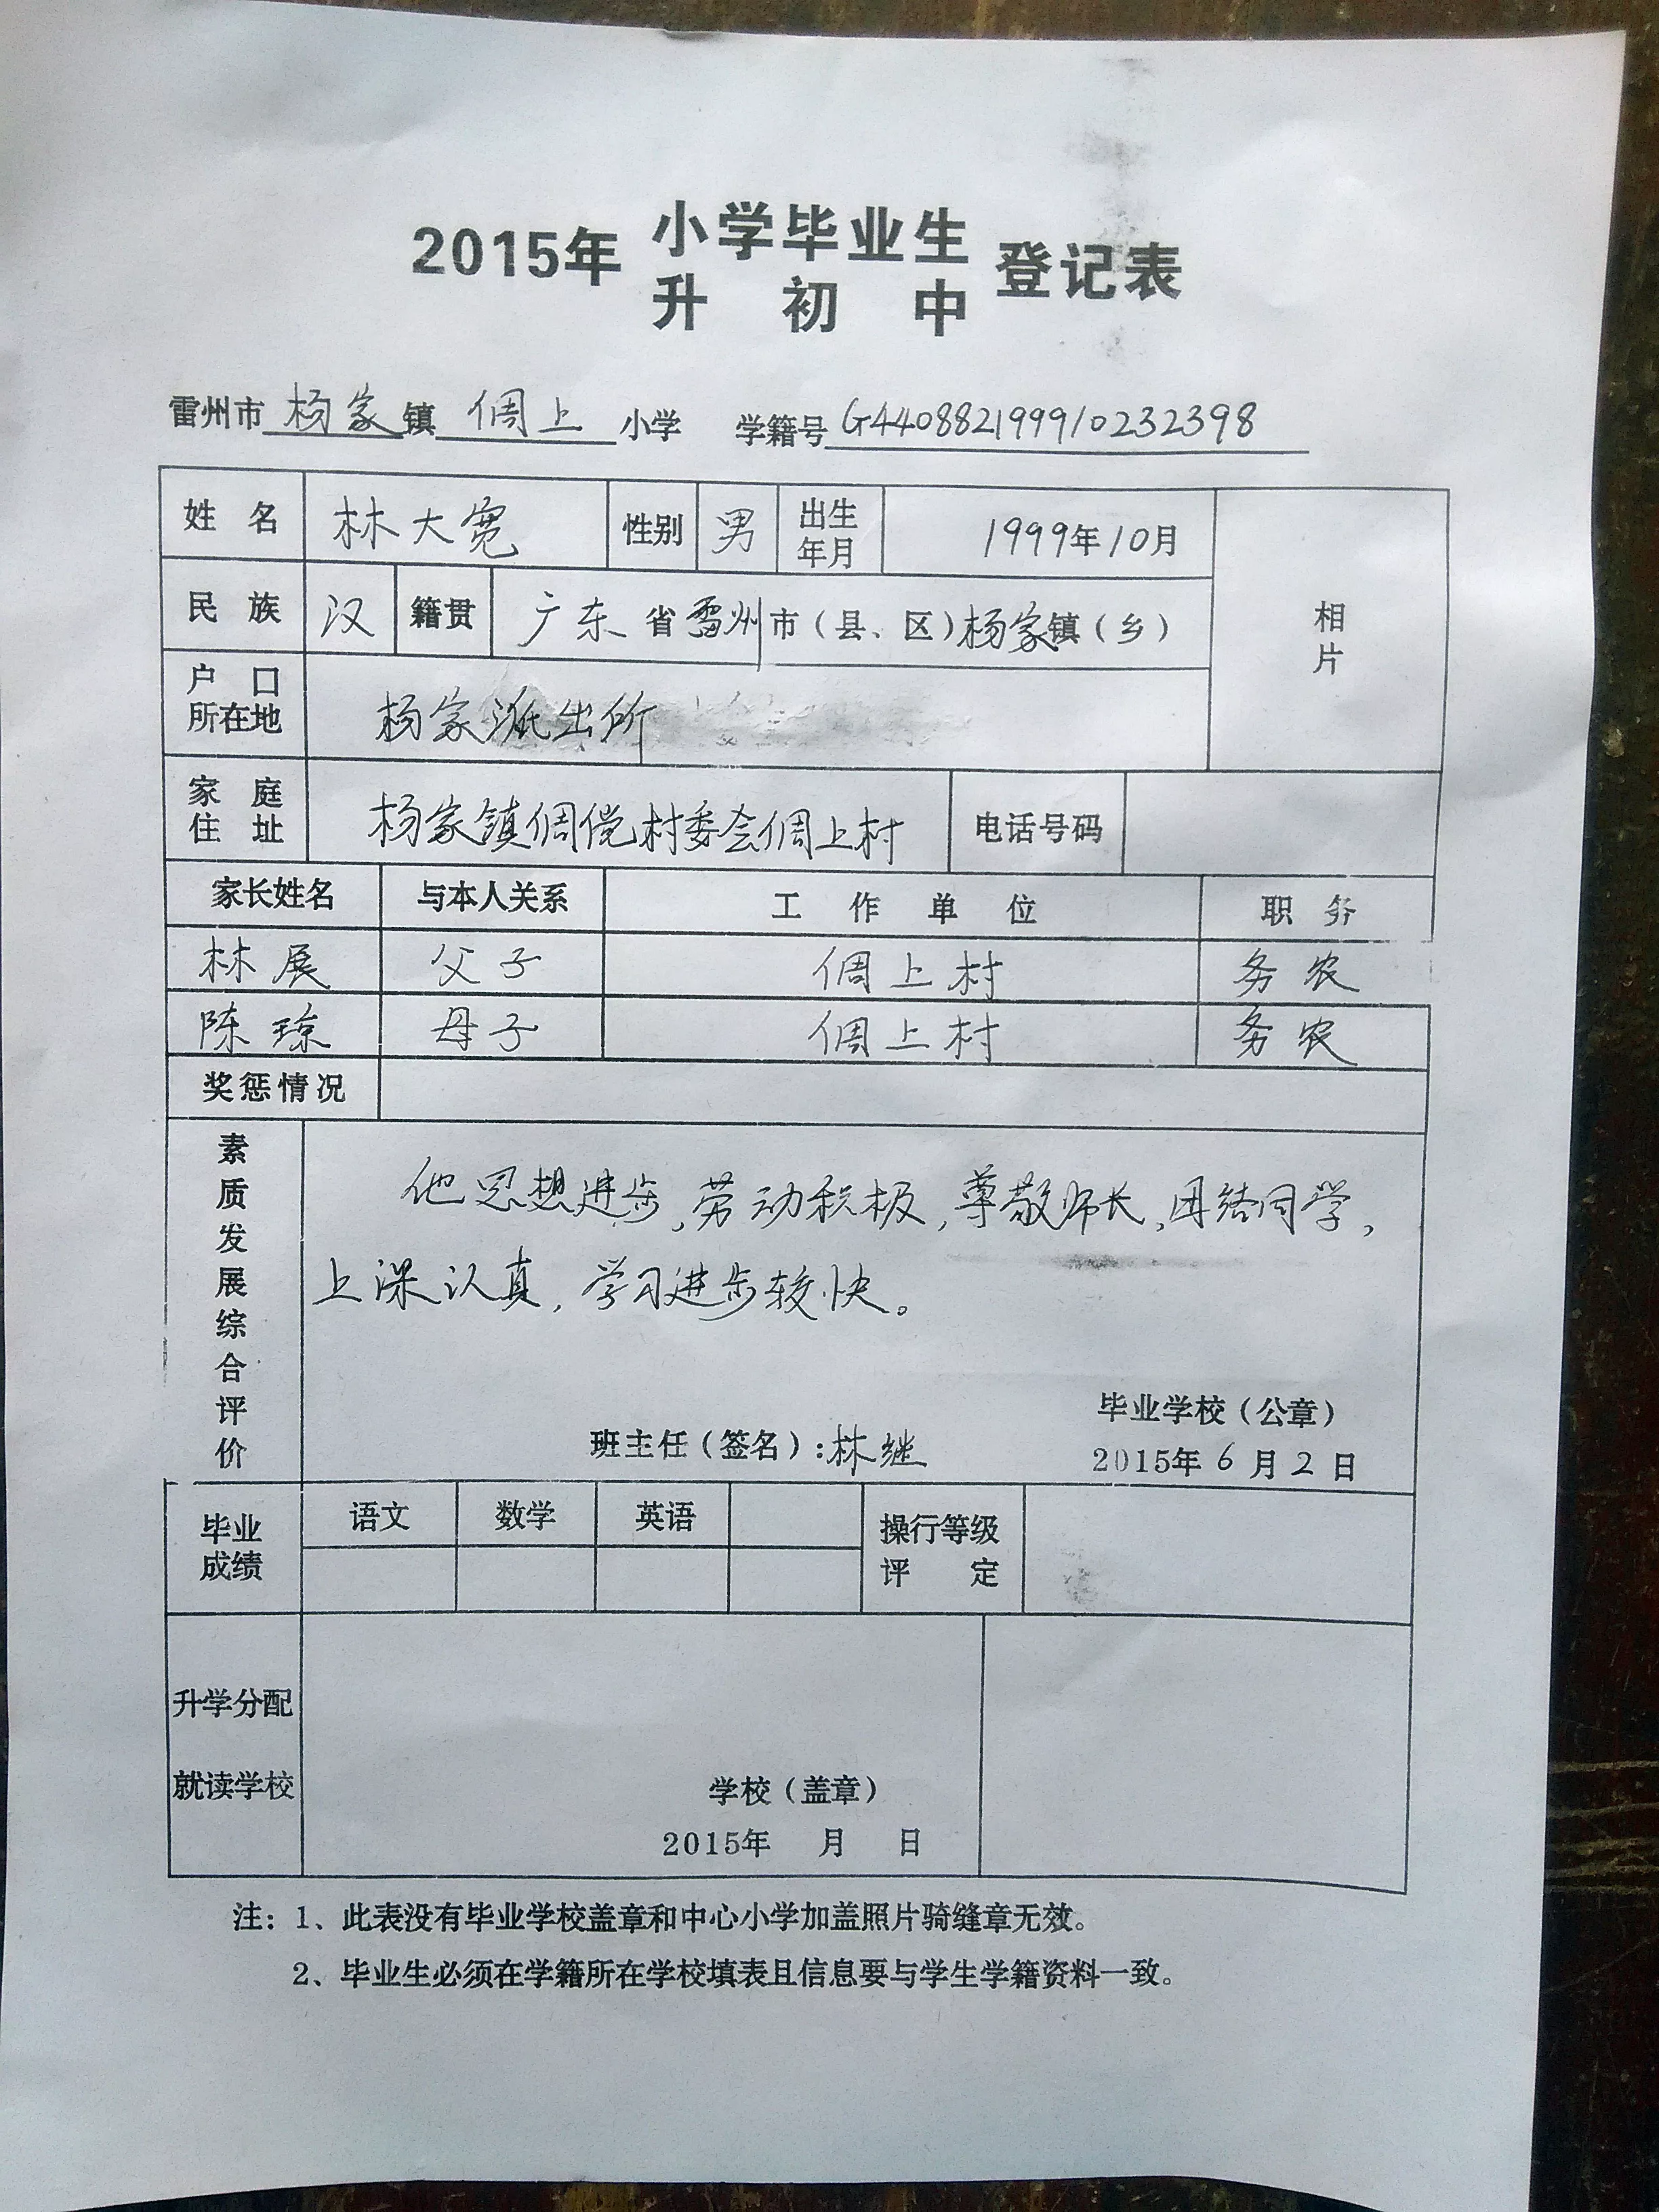 2015年 小学毕业生 登记表
升初中
雷州市杨家镇倜上小学 学籍号G440882199910232398
姓名 林大宽 性别 男 出生年月 1999年10月 相片
民族 汉 籍贯 广东省雷州市(县、区)杨家镇(乡)
户口所在地 杨家派出所
家庭住址 杨家镇倜傥村委会倜上村 电话号码
家长姓名 与本人关系 工作单位 职务
林展 父子 倜上村 务农
陈琼 母子 倜上村 务农
奖惩情况
素质发展综合评价
他思想进步,劳动积极,尊敬师长,团结同学,
上课认真,学习进步较快。
毕业学校(公章)
班主任(签名):林继 2015年6月2日
毕业成绩 语文 数学 英语 操行等级评定
升学分配
就读学校
学校(盖章)
2015年 月 日
注:1、此表没有毕业学校盖章和中心小学加盖照片骑缝章无效。
2、毕业生必须在学籍所在学校填表且信息要与学生学籍资料一致。